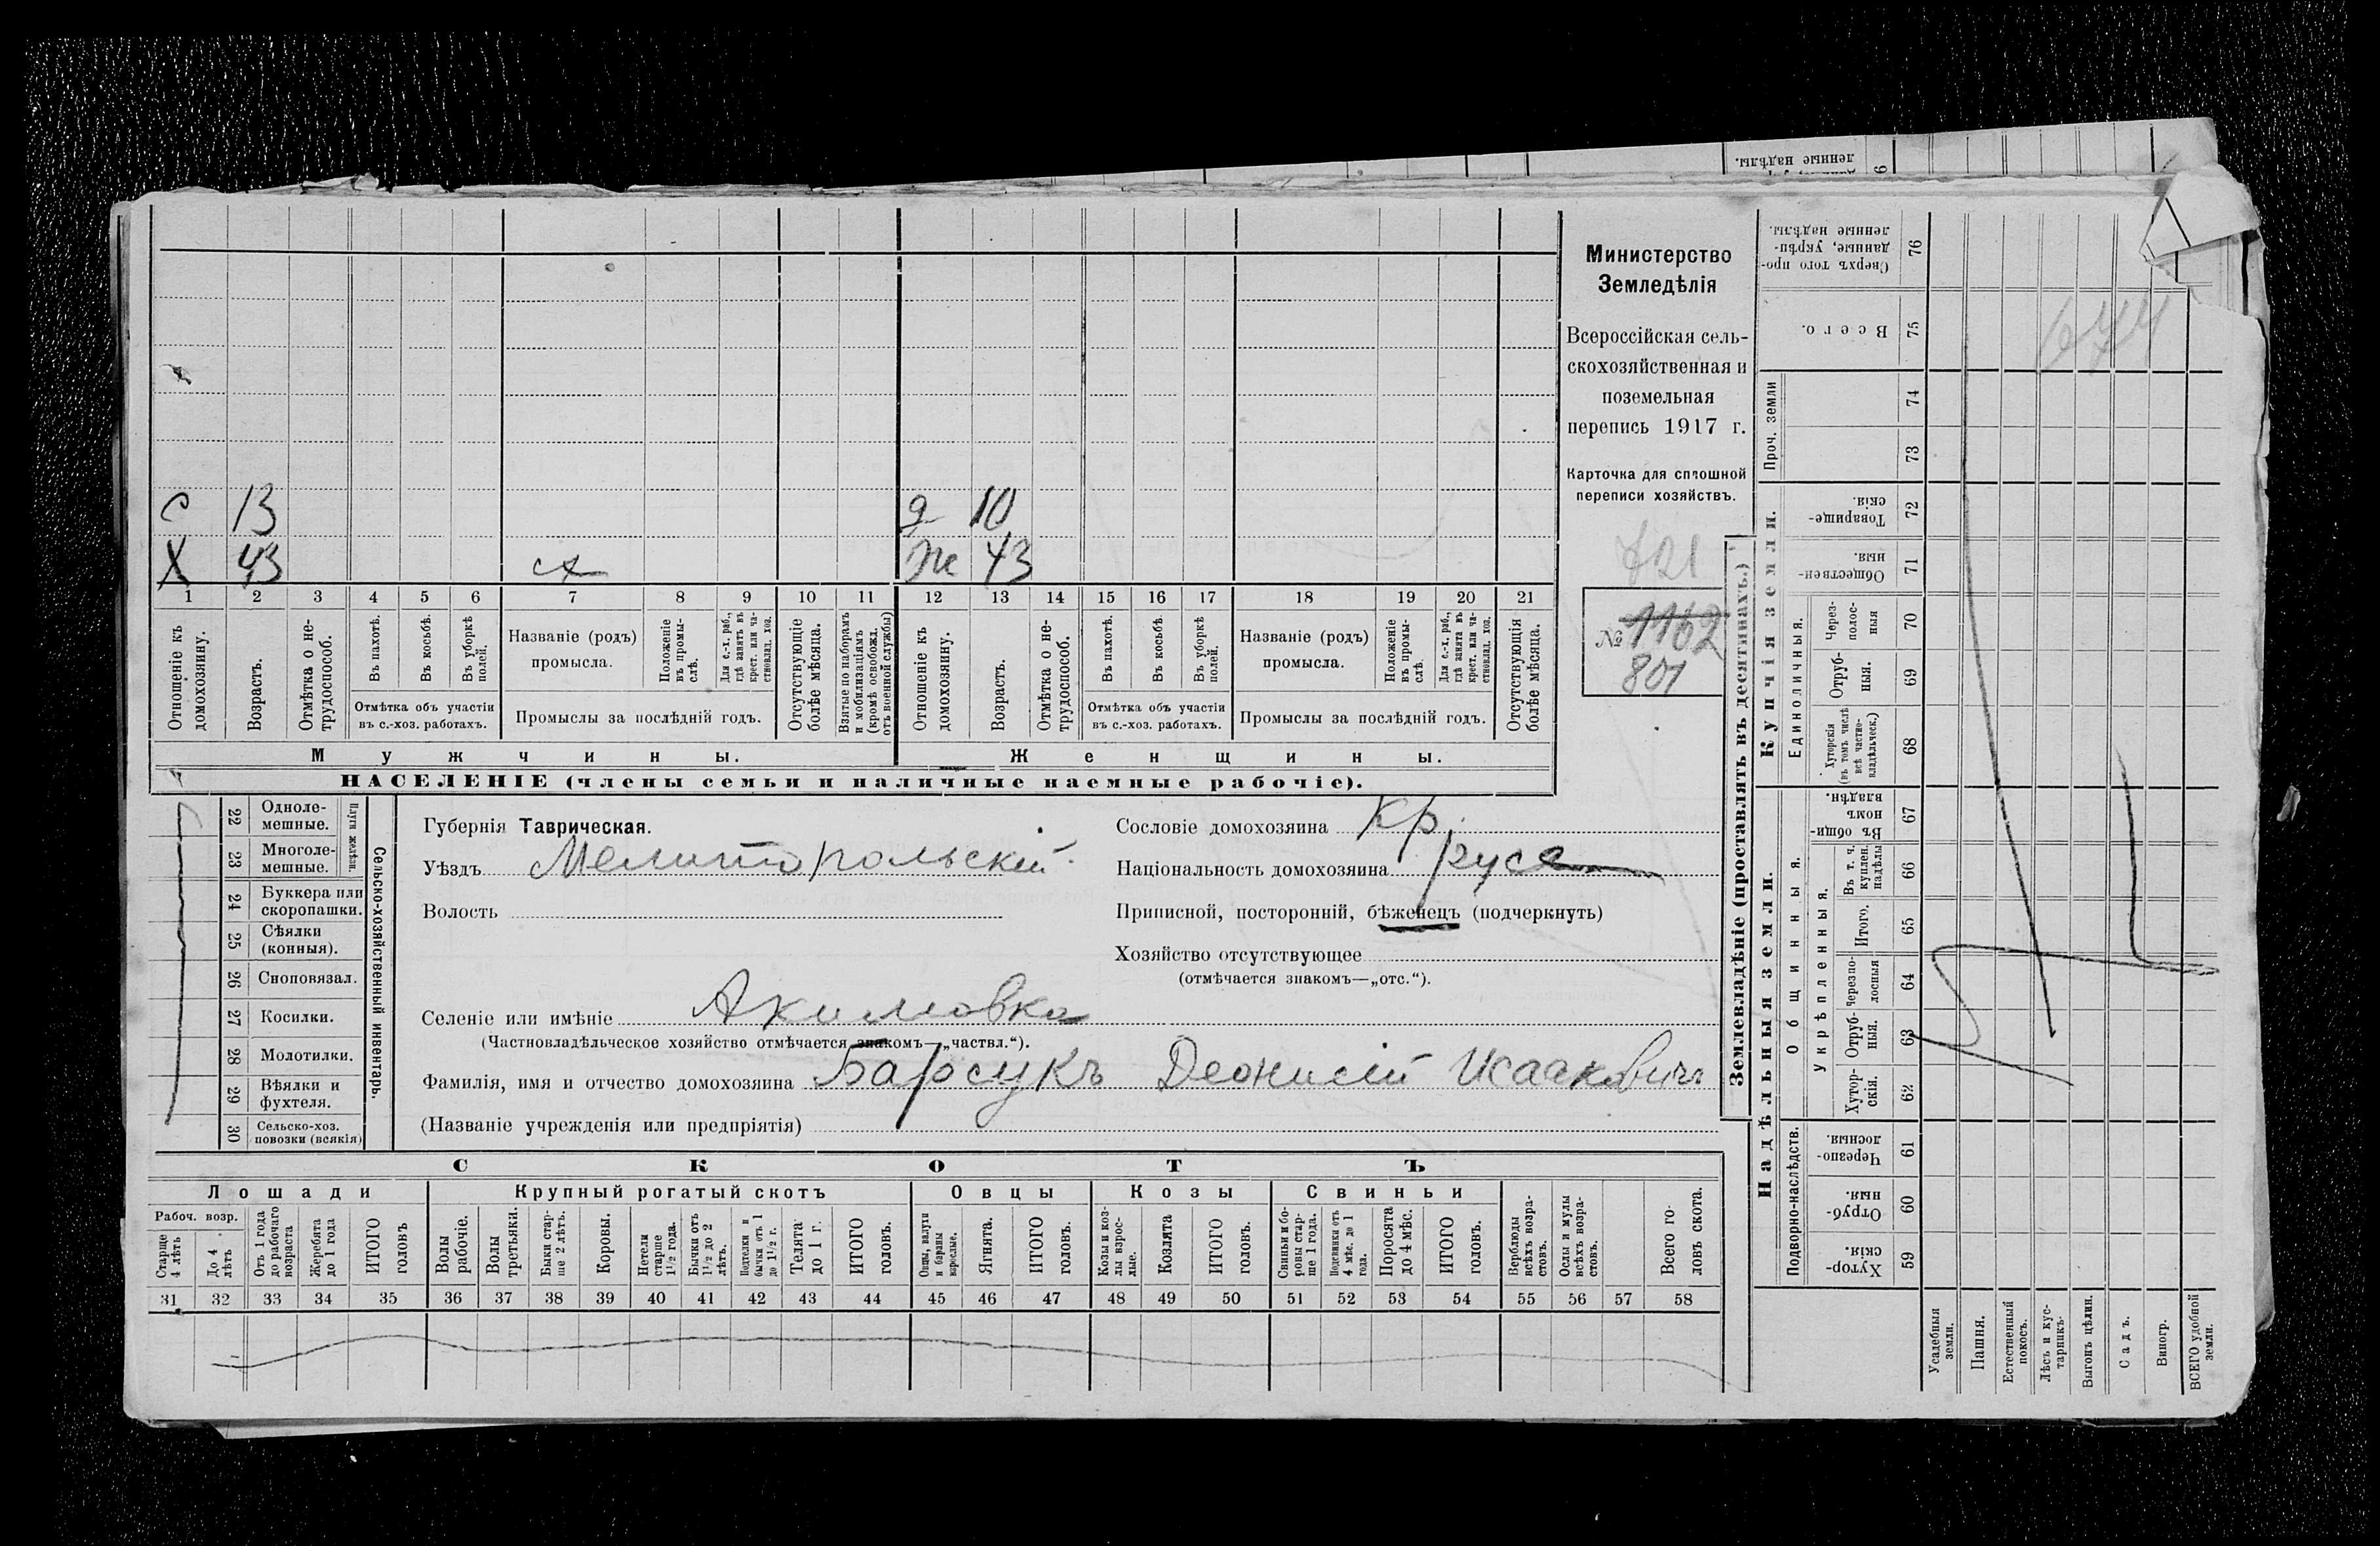 ленные надѣлы.
6
Министерство
Земледѣлія
Всероссійская сель-
скохозяйственная и
поземельная
перепись 1917 г.
Карточка для сплошной
переписи хозяйствъ.
721
№ 1162
801
с 13 д 10
X 43 сх ж 43
1 2 3 4 5 6 7 8 9 10 11 12 13 14 15 16 17 18 19 20 21
Отношеніе къ домохозяину.
Возрастъ.
Отмѣтка о не-трудоспособ.
Въ пахотѣ.
Въ косьбѣ.
Въ уборкѣ полей.
Отмѣтка объ участіи
въ с.-хоз. работахъ.
Названіе (родъ)
промысла.
Положеніе въ промы-слѣ.
Для с.-х. раб., гдѣ занятъ въ крест. или ча-стновлад. хоз.
Промыслы за послѣдній годъ.
Отсутствующіе болѣе мѣсяца.
Взятые по наборамъ и мобилизаціямъ (кромѣ освобожд. отъ военной службы)
Отношеніе къ домохозяину.
Возрастъ.
Отмѣтка о не-трудоспособ.
Въ пахотѣ.
Въ косьбѣ.
Въ уборкѣ полей.
Отмѣтка объ участіи
въ с.-хоз. работахъ.
Названіе (родъ)
промысла.
Положеніе въ промы-слѣ.
Для с.-х. раб., гдѣ занята въ крест. или ча-стновлад. хоз.
Промыслы за послѣдній годъ.
Отсутствующія болѣе мѣсяца.
Мужчины.
Женщины.
НАСЕЛЕНІЕ (члены семьи и наличные наемные рабочіе).
22 Одноле-мешные.
23 Многоле-мешные.
Плуги желѣзн.
24 Буккера или скоропашки.
25 Сѣялки (конныя).
26 Сноповязал.
27 Косилки.
28 Молотилки.
29 Вѣялки и фухтеля.
30 Сельско-хоз. повозки (всякія)
Сельско-хозяйственный инвентарь.
Губернія Таврическая.
Уѣздъ Мелитопольскій
Волость
Сословіе домохозяина кр.
Національность домохозяина русс
Приписной, посторонній, бѣженецъ (подчеркнуть)
Хозяйство отсутствующее
(отмѣчается знакомъ—„отс.“).
Селеніе или имѣніе Акимовка
(Частновладѣльческое хозяйство отмѣчается знакомъ—„частвл.“).
Фамилія, имя и отчество домохозяина Барсукъ Деонисій Исааковичъ
(Названіе учрежденія или предпріятія)
СКОТЪ
Лошади
Крупный рогатый скотъ
Овцы
Козы
Свиньи
Рабоч. возр.
Старше 4 лѣтъ
До 4 лѣтъ
Отъ 1 года до рабочаго возраста
Жеребята до 1 года
ИТОГО головъ
Волы рабочіе.
Волы третьяки.
Быки стар-ше 2 лѣтъ.
Коровы.
Нетели старше 1½ года.
Бычки отъ 1½ до 2 лѣтъ.
Подтелки и бычки отъ 1 до 1½ г.
Телята до 1 г.
ИТОГО головъ.
Овцы, валухи и бараны взрослые.
Ягнята.
ИТОГО головъ.
Козы и коз-лы взрос-лые.
Козлята
ИТОГО головъ.
Свиньи и бо-ровы стар-ше 1 года.
Подсвинки отъ 4 мѣс. до 1 года.
Поросята до 4 мѣс.
ИТОГО головъ.
Верблюды всѣхъ возра-стовъ.
Ослы и мулы всѣхъ возра-стовъ.
Всего го-ловъ скота.
31 32 33 34 35 36 37 38 39 40 41 42 43 44 45 46 47 48 49 50 51 52 53 54 55 56 57 58
Землевладѣніе (проставлять въ десятинахъ.)
Надѣльныя земли.
Купчія земли.
Проч. земли
Подворно-наслѣдств.
Общинныя.
Укрѣпленныя.
Единоличныя.
Сверхъ того про-данные, укрѣп-ленные надѣлы. 76
Всего. 75
74
73
Товарище-скія. 72
Обществен-ныя. 71
Через-полос-ныя 70
Отруб-ныя. 69
Хуторскія (въ томъ числѣ всѣ частно-владѣльческ.) 68
Въ общи-номъ владѣн. 67
Въ т. ч. куплен. надѣлы 66
Итого. 65
Черезпо-лосныя 64
Отруб-ныя. 63
Хутор-скія. 62
Черезпо-лосныя. 61
Отруб-ныя. 60
Хутор-скія. 59
Усадебныя земли.
Пашня.
Естественный покосъ.
Лѣсъ и кус-тарникъ.
Выгонъ цѣлин.
Садъ.
Виногр.
ВСЕГО удобной земли.